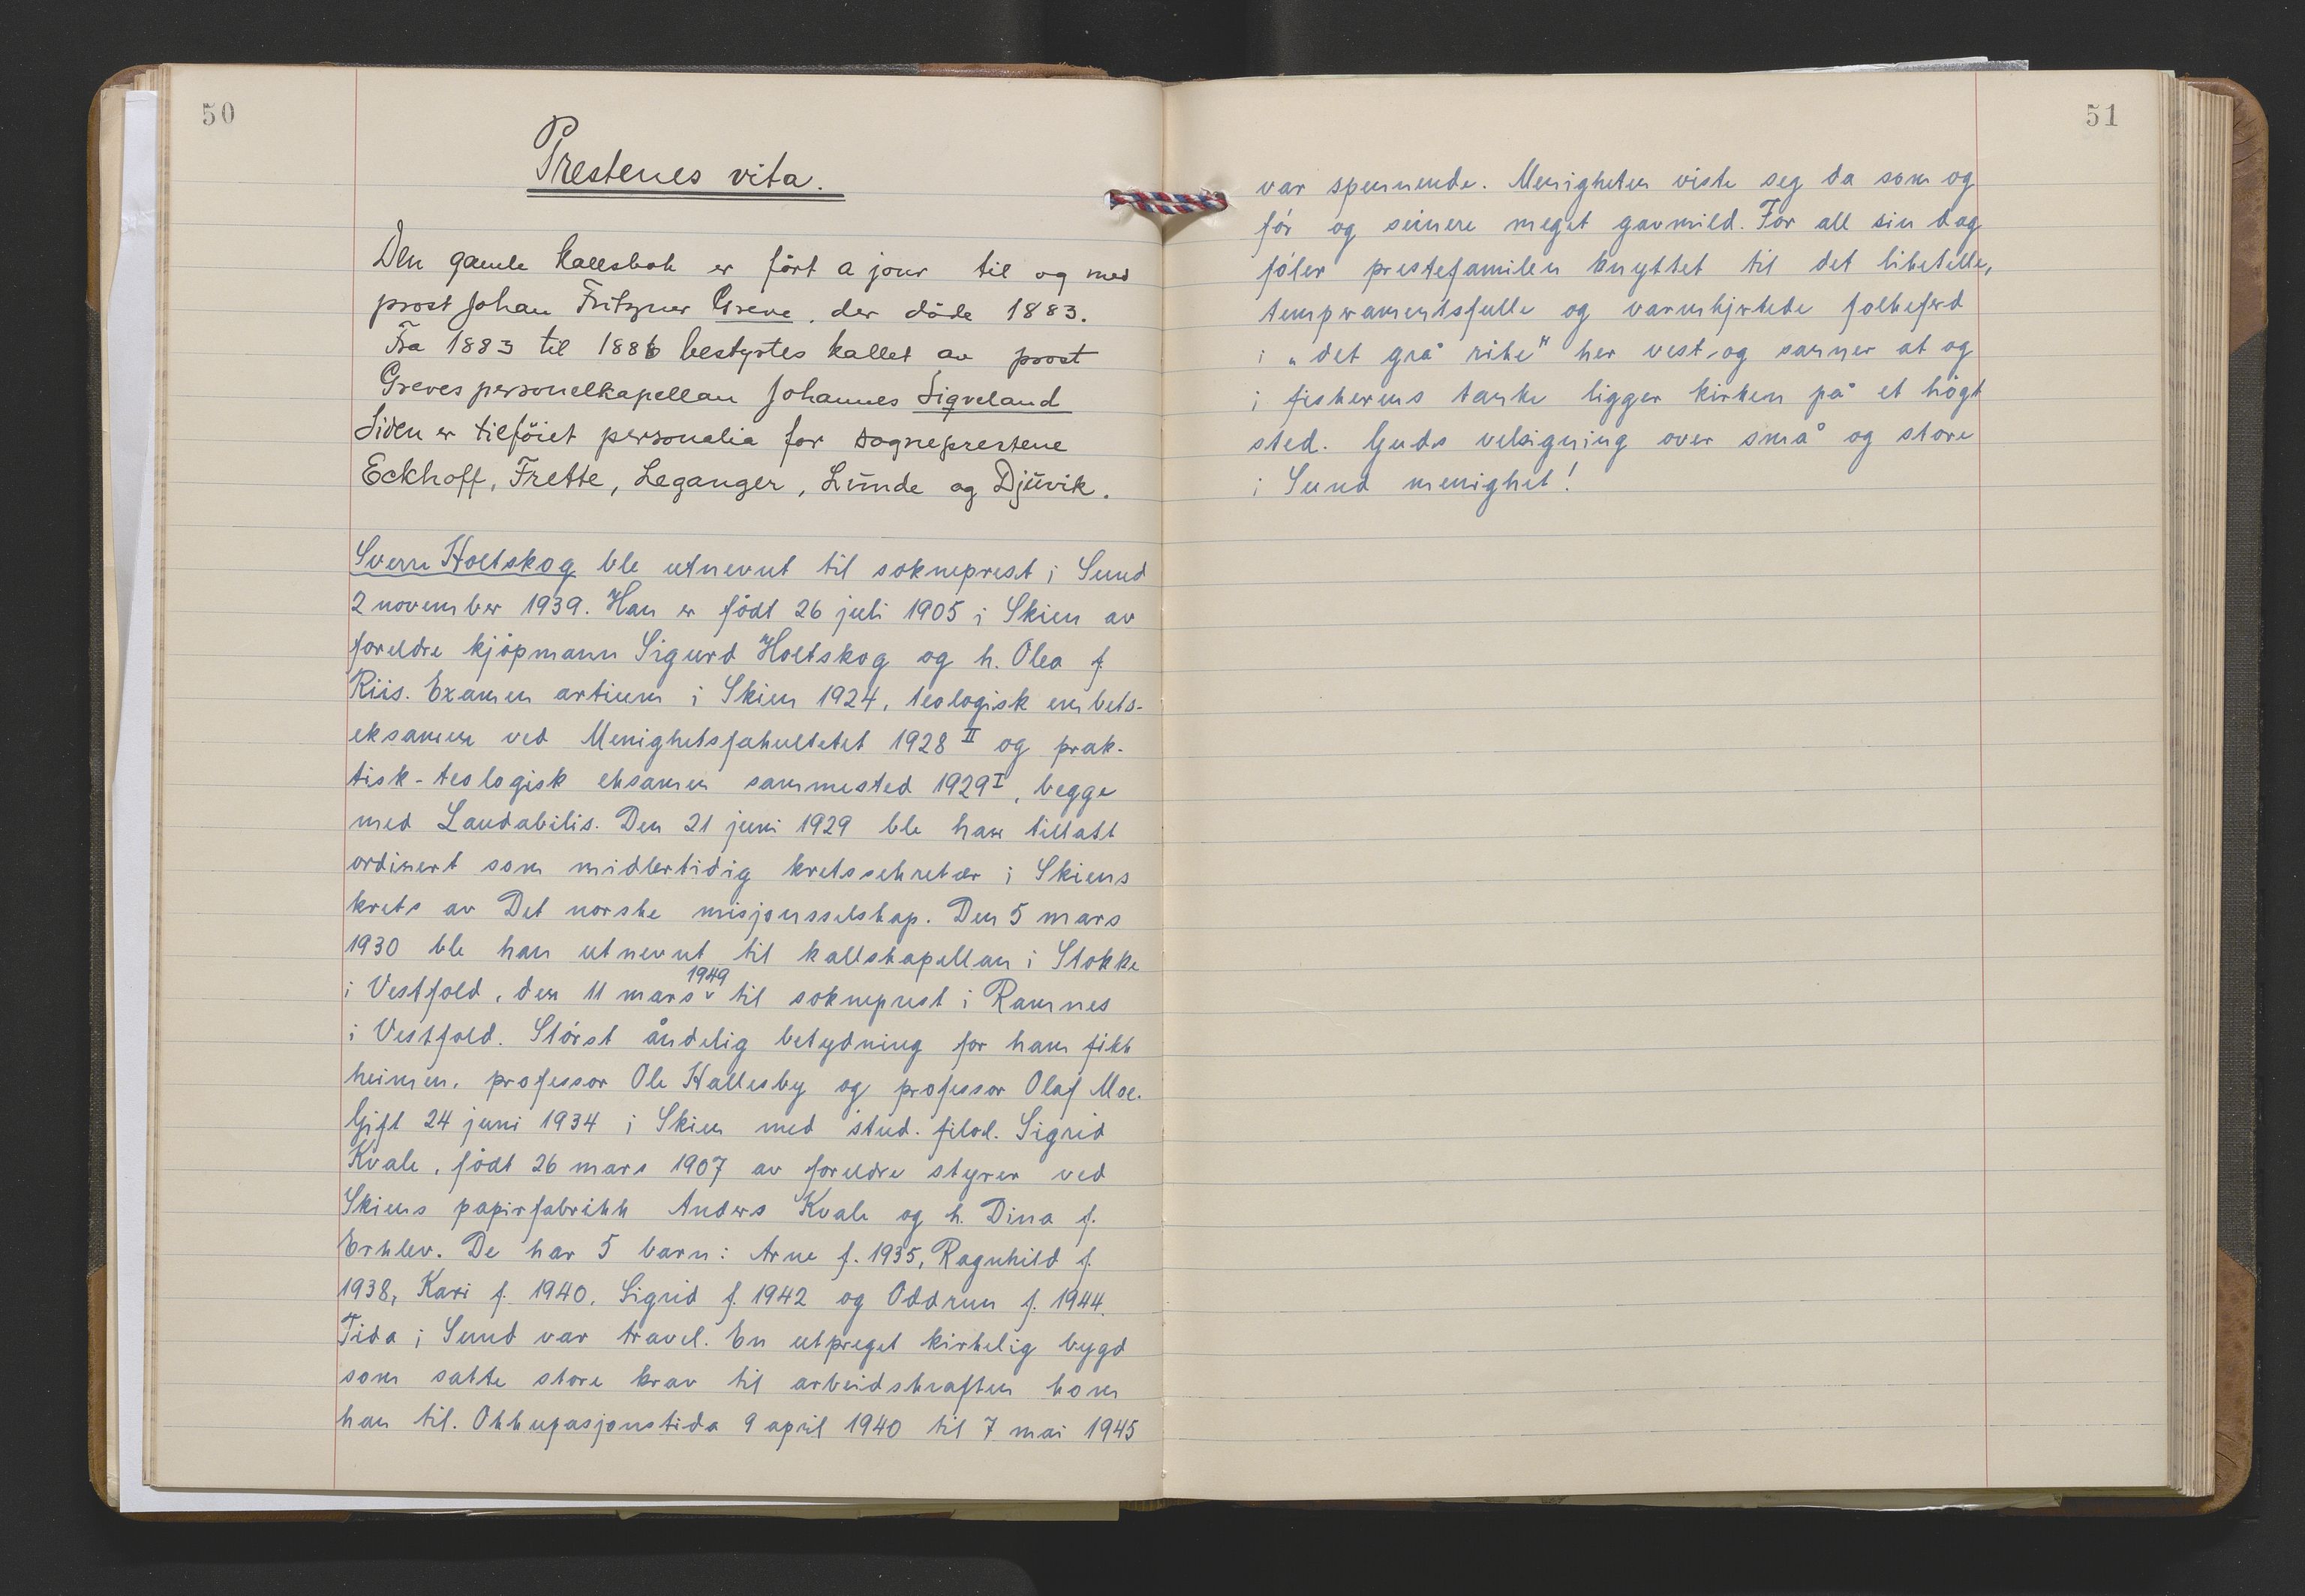 50
Prestenes vita.
Den gamle kallsbok er ført a jour til og med
prost Johan Fritzner Greve, der døde 1883.
Fra 1883 til 1886 bestyrtes kallet av prost
Greves personelkapellan Johannes Sigveland
Siden er tilføiet personalia for sogneprestene
Eckhoff, Frette, Leganger, Lunde og Djuvik.
Sverre Holtskog ble utnevnt til sokneprest i Sund
2 november 1939. Han er født 26 juli 1905 i Skien av
foreldre kjøpmann Sigurd Holtskog og h. Olea f.
Riis. Examen artium i Skien 1924, teologisk embets-
eksamen ved Menighetsfakultetet 1928 II og prak-
tisk-teologisk eksamen sammested 1929 I, begge
med Laudabilis. Den 21 juni 1929 ble han tillatt
ordinert som midlertidig kretssekretær i Skiens
krets av Det norske misjonsselskap. Den 5 mars
1930 ble han utnevnt til kallskapellan i Stokke
i Vestfold, den 11 mars 1949 til sokneprest i Ramnes
i Vestfold. Størst åndelig betydning for ham fikk
heimen, professor Ole Hallesby og professor Olaf Moe.
Gift 24 juni 1934 i Skien med stud. filol. Sigrid
Kvale, født 26 mars 1907 av foreldre styrer ved
Skiens papirfabrikk Anders Kvale og h. Dina f.
Erklev. De har 5 barn: Arne f. 1935, Ragnhild f.
1938, Kari f. 1940, Sigrid f. 1942 og Oddrun f. 1944.
Tida i Sund var travel. En utpreget kirkelig bygd
som satte store krav til arbeidskraften kom
han til. Okkupasjonstida 9 april 1940 til 7 mai 1945
51
var spennende. Menigheten viste seg da som og
før og seinere meget gavmild. For all sin dag
føler prestefamilen knyttet til det liketille,
temperamentsfulle og varmhjertede folkeferd
i „det grå rike" her vest, og sanner at og
i fiskerens tanke ligger kirken på et høgt
sted. Guds velsigning over små og store
i Sund menighet!